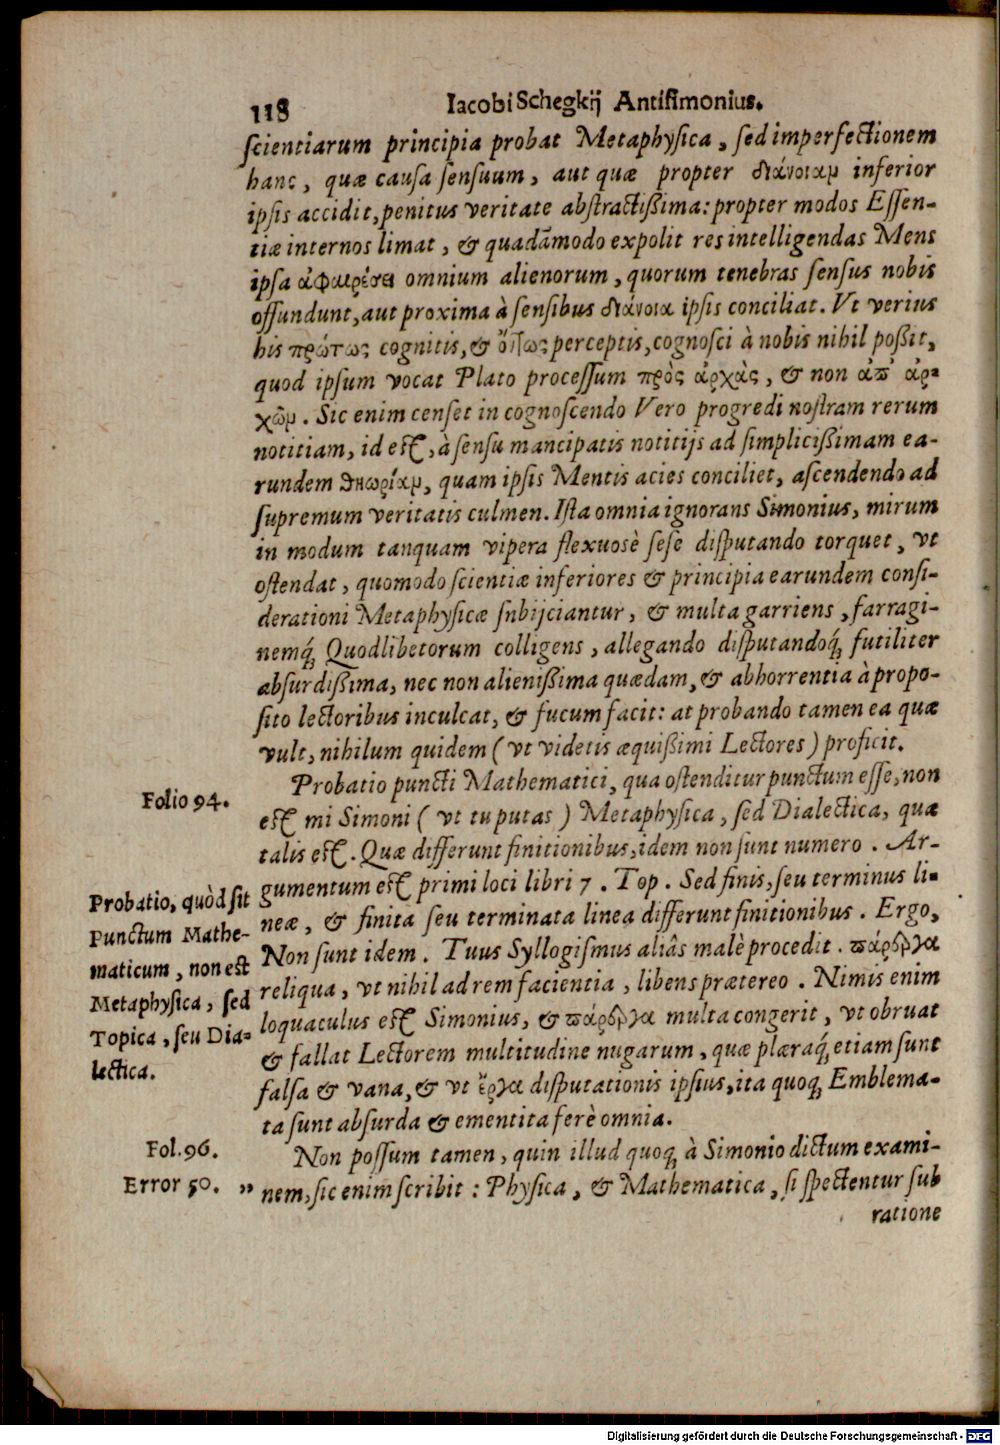 118 Iacobi Schegkij Antisimonius.
scientiarum principia probat Metaphysica, sed imperfectionem
hanc, quæ causa sensuum, aut quæ propter διάνοιαμ inferior
ipsis accidit, penitus veritate abstractißima: propter modos Essen-
tiæ internos limat, & quadāmodo expolit res intelligendas Mens
ipsa ἀφαιρέσει omnium alienorum, quorum tenebras sensus nobis
offundunt, aut proxima à sensibus διάνοια ipsis conciliat. Vt verius
his πρώτως cognitis, & ὄντως perceptis, cognosci à nobis nihil poßit,
quod ipsum vocat Plato processum πρὸς ἀρχὰς, & non ἀπ' ἀρ-
χῶμ. Sic enim censet in cognoscendo Vero progredi nostram rerum
notitiam, id est, à sensu mancipatis notitijs ad simplicißimam ea-
rundem θεωρίαμ, quam ipsis Mentis acies conciliet, ascendendo ad
supremum veritatis culmen. Ista omnia ignorans Simonius, mirum
in modum tanquam vipera flexuosè sese disputando torquet, vt
ostendat, quomodo scientiæ inferiores & principia earundem consi-
derationi Metaphysicæ snbijciantur, & multa garriens, farragi-
nemq́; Quodlibetorum colligens, allegando disputandoq́; futiliter
absurdißima, nec non alienißima quædam, & abhorrentia à propo-
sito lectoribus inculcat, & fucum facit: at probando tamen ea quæ
vult, nihilum quidem (vt videtis æquißimi Lectores) proficit.
Folio 94.
Probatio puncti Mathematici, qua ostenditur punctum esse, non
est mi Simoni (vt tu putas) Metaphysica, sed Dialectica, quæ
talis est. Quæ differunt finitionibus, idem non sunt numero. Ar-
gumentum est primi loci libri 7. Top. Sed finis, seu terminus li-
neæ, & finita seu terminata linea differunt finitionibus. Ergo,
Non sunt idem. Tuus Syllogismus aliâs malè procedit. πάρεργα
reliqua, vt nihil ad rem facientia, libens prætereo. Nimis enim
loquaculus est Simonius, & πάρεργα multa congerit, vt obruat
& fallat Lectorem multitudine nugarum, quæ plæraq́; etiam sunt
falsa & vana, & vt ἔργα disputationis ipsius, ita quoq; Emblema-
ta sunt absurda & ementita ferè omnia.
Probatio, quòd sit
Punctum Mathe-
maticum, non est
Metaphysica, sed
Topica, seu Dia-
lectica.
Fol. 96.
Error 50.
Non possum tamen, quin illud quoq; à Simonio dictum exami-
" nem, sic enim scribit: Physica, & Mathematica, si spectentur sub
ratione
Digitalisierung gefördert durch die Deutsche Forschungsgemeinschaft - DFG